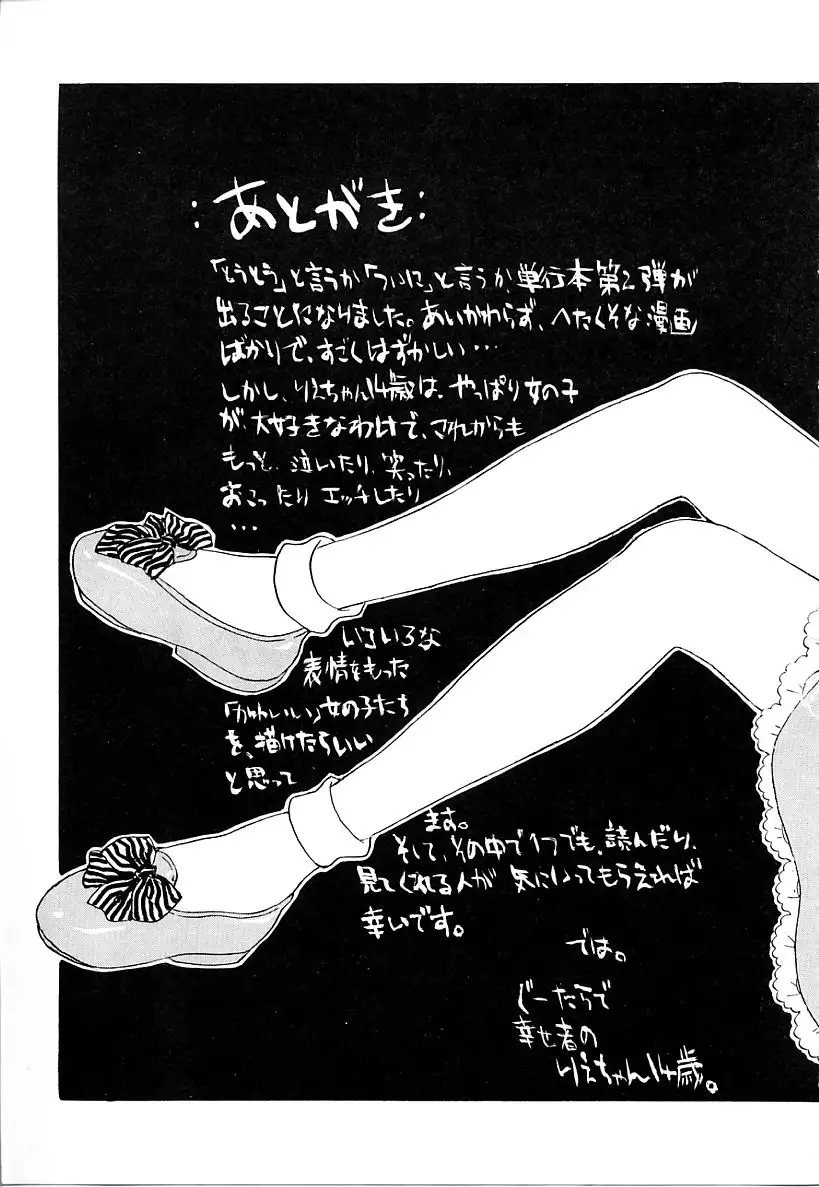 :あとがき:
「とうとう」と言うか「ついに」と言うか、単行本第2弾が
出ることになりました。あいかわらず、へたくそな漫画
ばかりで、すごくはずかしい…
しかし、りえちゃん14歳は、やっぱり女の子
が、大好きなわけで、これからも
もっと、泣いたり、笑ったり、
おこったり エッチしたり
…
いろいろな
表情をもった
「かわいい」女の子たち
を、描けたらいい
と思って
ます。
そして、その中で1つでも、読んだり、
見てくれる人が 気にいってもらえれば
幸いです。
では。
ぐーたらで
幸せ者の
りえちゃん14歳。